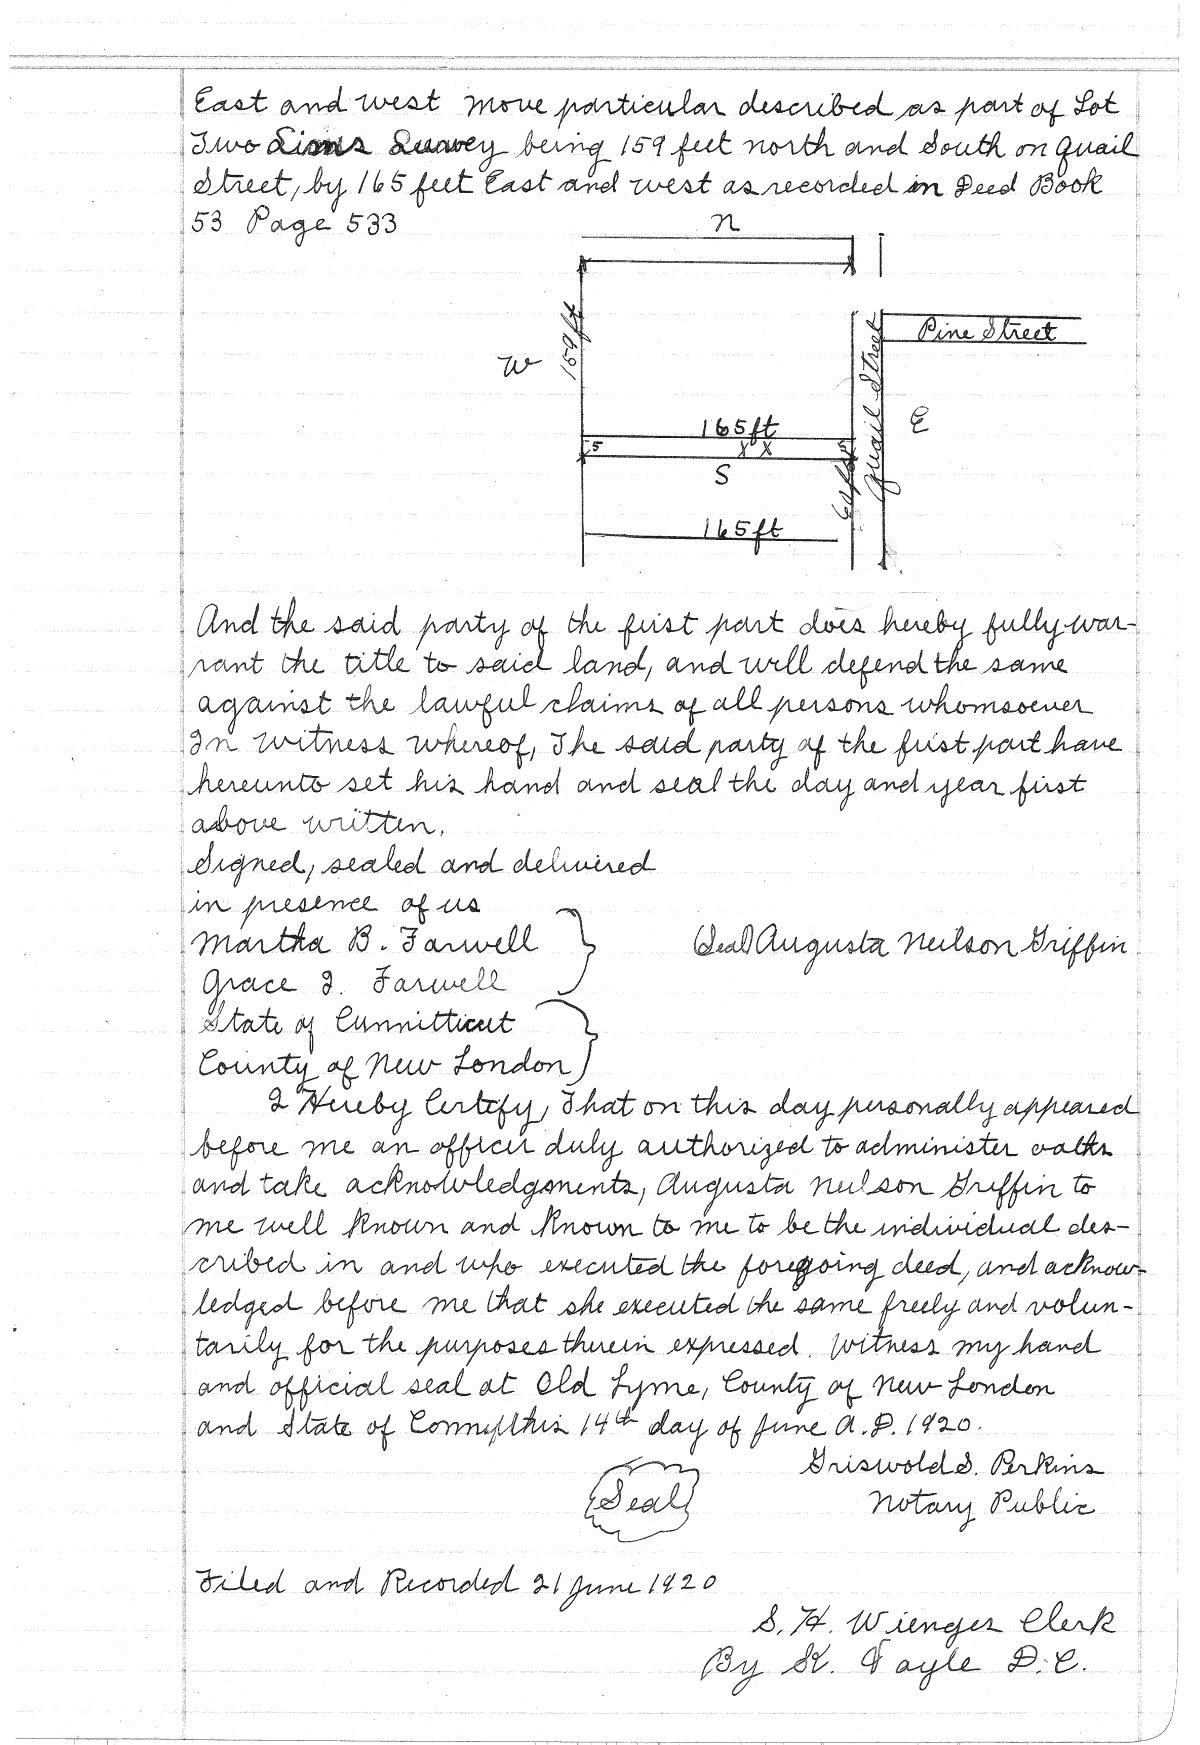 East and west move particular described as part of Lot
Two Sims Survey being 159 feet north and South on Quail
Street, by 165 feet East and west as recorded in Deed Book
53 Page 533
N
Pine Street
159 ft
W
Quail Street
E
165 ft
5 x x 5
S
165 ft
And the said party of the first part does hereby fully war-
rant the title to said land, and will defend the same
against the lawful claims of all persons whomsoever
In witness whereof, The said party of the first part have
hereunto set his hand and seal the day and year first
above written.
Signed, sealed and delivered
in presence of us
Martha B. Farwell (Seal) Augusta Neilson Griffin
Grace I. Farwell
State of Cunnitticut
County of New London
I Hereby Certify, That on this day personally appeared
before me an officer duly authorized to administer oaths
and take acknowledgments, Augusta Neilson Griffin to
me well known and known to me to be the individual des-
cribed in and who executed the foregoing deed, and acknow-
ledged before me that she executed the same freely and volun-
tarily for the purposes therein expressed. Witness my hand
and official seal at Old Lyme, County of New London
and State of this 14th day of June A.D. 1920.
Griswold S. Perkins
Seal Notary Public
Filed and Recorded 21 June 1920
S. H. Wienges Clerk
By K. D.C.